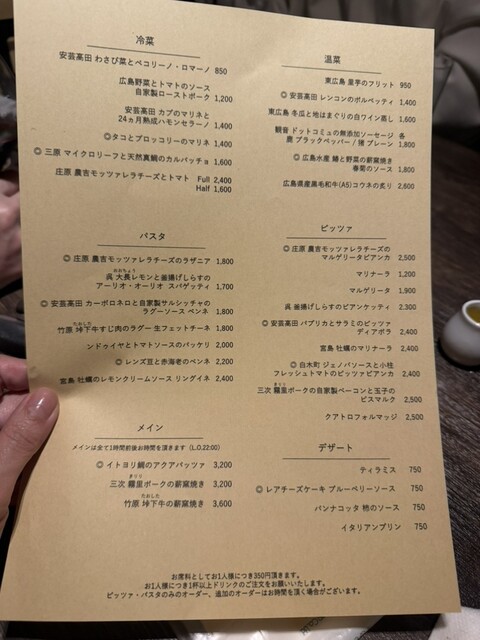 冷菜
安芸高田 わさび菜とペコリーノ・ロマーノ 850
広島野菜とトマトのソース
自家製ローストポーク 1,200
安芸高田 カブのマリネと
24ヵ月熟成ハモンセラーノ 1,400
◎タコとブロッコリーのマリネ 1,400
◎ 三原 マイクロリーフと天然真鯛のカルパッチョ 1,600
庄原 農吉モッツァレラチーズとトマト Full 2,400
Half 1,600
パスタ
◎ 庄原 農吉モッツァレラチーズのラザニア 1,800
おおちょう
呉 大長レモンと釜揚げしらすの
アーリオ・オーリオ スパゲッティ 1,700
◎ 安芸高田 カーボロネロと自家製サルシッチャの
ラグーソース ペンネ 1,800
たおした
竹原 垰下牛すじ肉のラグー 生フェットチーネ 1,800
ンドゥイヤとトマトソースのパッケリ 2,000
◎ レンズ豆と赤海老のペンネ 2,200
宮島 牡蠣のレモンクリームソース リングイネ 2,400
メイン
メインは全て1時間前後お時間を頂きます (L.O.22:00)
◎ イトヨリ鯛のアクアパッツァ 3,200
きり
三次 霧里ポークの薪窯焼き 3,200
たおした
竹原 垰下牛の薪窯焼き 3,600
温菜
東広島 里芋のフリット 950
◎ 安芸高田 レンコンのポルペッティ 1,400
東広島 冬瓜と地はまぐりの白ワイン蒸し 1,600
観音 ドットコミュの無添加ソーセージ 各
鹿 ブラックペッパー / 猪 プレーン 1,800
◎ 広島水産 鰆と野菜の薪窯焼き
春菊のソース 1,800
広島県産黒毛和牛(A5)コウネの炙り 2,600
ピッツァ
◎ 庄原 農吉モッツァレラチーズの
マルゲリータビアンカ 2,500
マリナーラ 1,200
マルゲリータ 1,900
呉 釜揚げしらすのビアンケッティ 2.300
◎ 安芸高田 パプリカとサラミのピッツァ
ディアボラ 2,400
宮島 牡蠣のマリナーラ 2,400
◎ 白木町 ジェノバソースと小柱
フレッシュトマトのピッツァビアンカ 2,400
きり
三次 霧里ポークの自家製ベーコンと玉子の
ビスマルク 2,500
クアトロフォルマッジ 2,500
デザート
ティラミス 750
◎ レアチーズケーキ ブルーベリーソース 750
パンナコッタ 柿のソース 750
イタリアンプリン 750
お席料としてお1人様につき350円頂きます。
お1人様につき1杯以上ドリンクのご注文をお願いいたします。
ピッツァ・パスタのみのオーダー、追加のオーダーはお時間を頂く場合がございます。